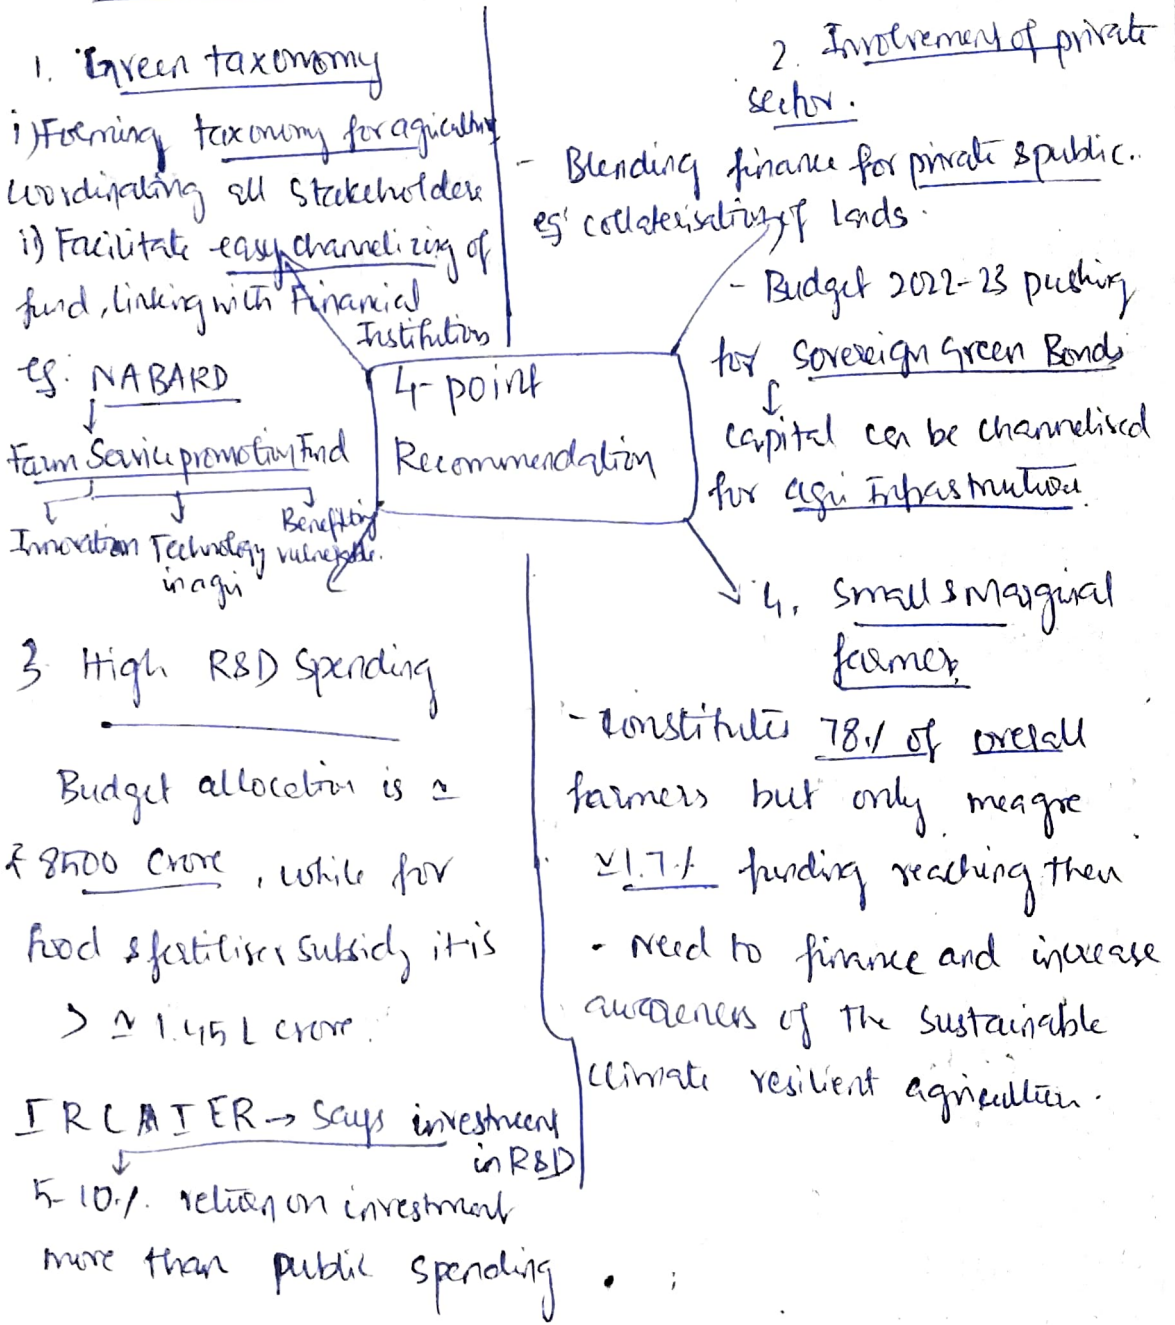 1. Green taxonomy
i) Forming taxonomy for agriculture
coordinating all Stakeholders
ii) Facilitate easy channelizing of
fund, linking with Financial
Institutions
eg: NABARD
Farm Service promotion Fund
Innovation Technology in agri Benefitting vulnerable.
2. Involvement of private
sector.
- Blending finance for private & public.
eg' collaterisation of lands.
- Budget 2022-23 pushing
for Sovereign Green Bonds
capital can be channelised
for agri Infrastruction
4-point
Recommendation
3 High R&D Spending
Budget allocation is ≃
₹ 8500 crore, while for
food & fertiliser subsidy it is
> ≃ 1.45 L crore.
→ Says investment
in R&D
5-10%. return on investment
more than public spending.
4. Small & Marginal
farmer
- constitutes 78% of overall
farmers but only meagre
≃1.7% funding reaching them
- need to finance and increase
awareness of the sustainable
climate resilient agriculture.